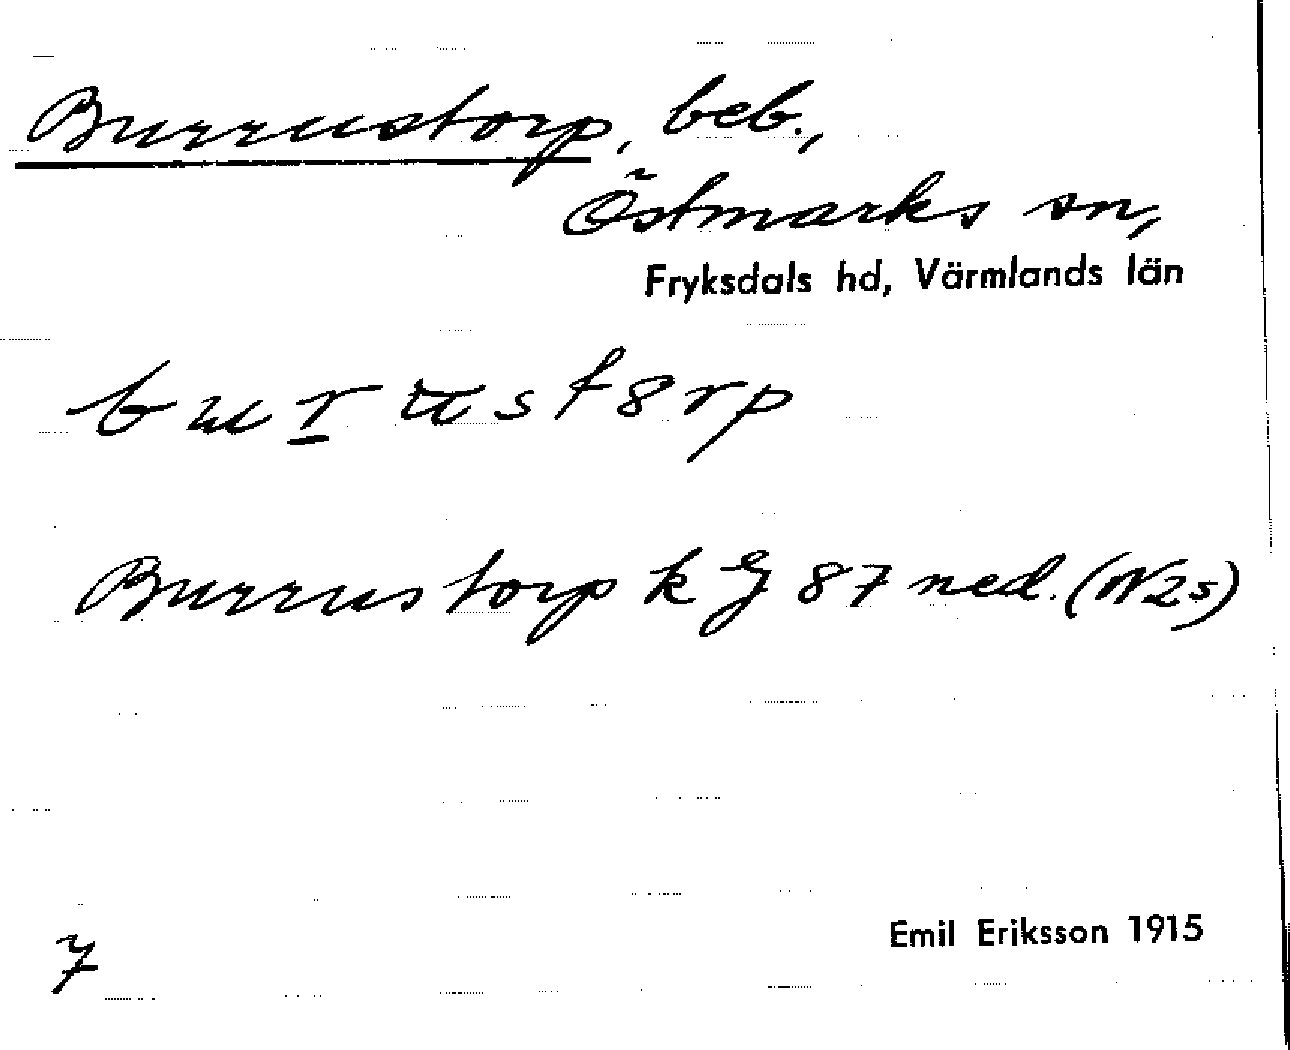 Burrustorp, beb.,
Östmarks sn,
Fryksdals hd, Värmlands län
Burrustorp k G 87 ned. (N2s)
Emil Eriksson 1915
7